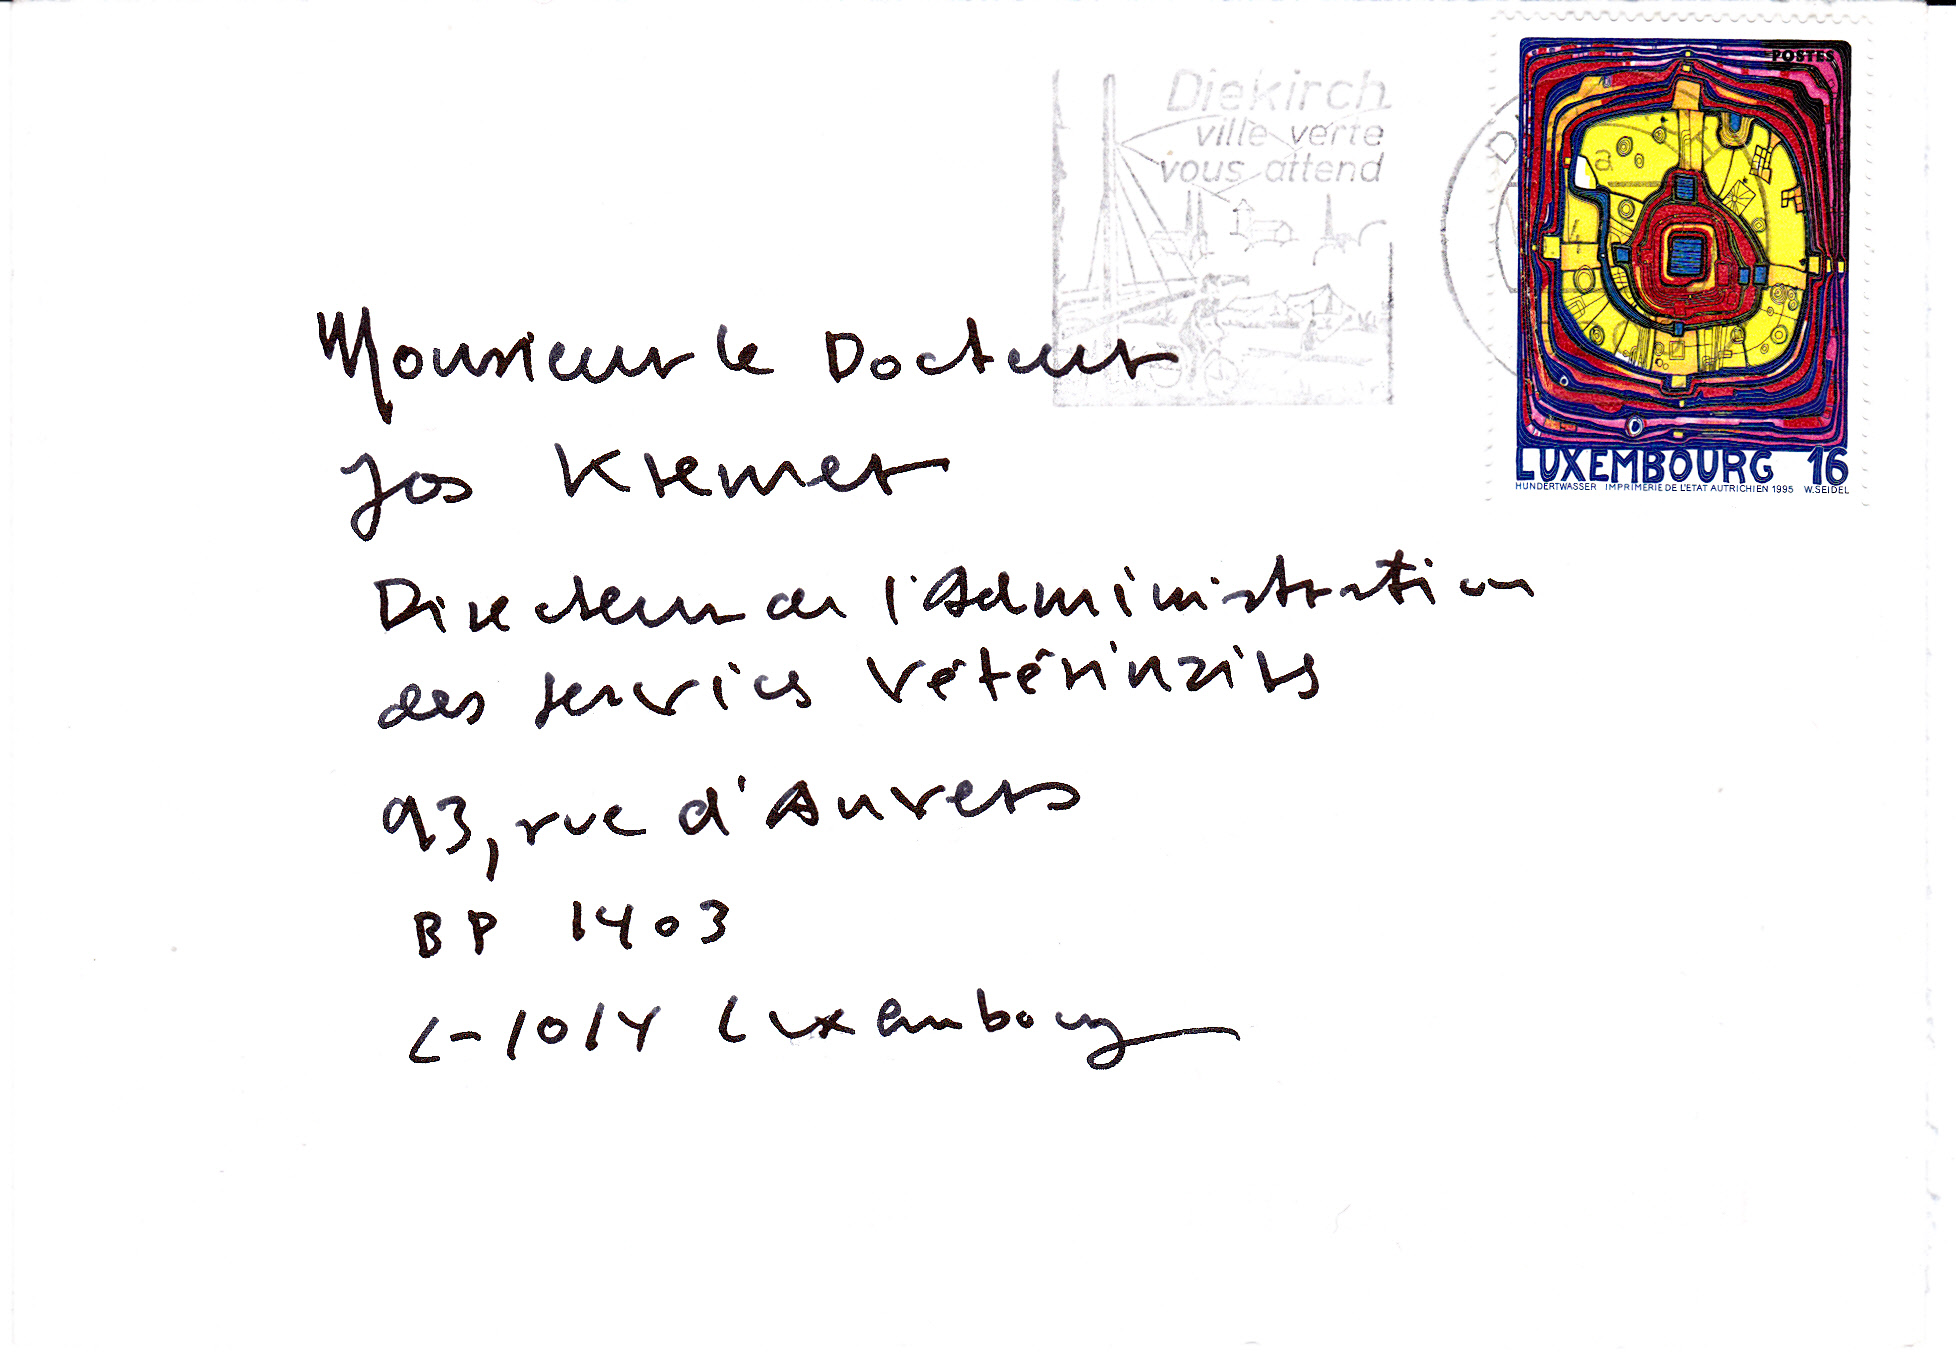 Diekirch
ville verte
vous attend
POSTES
LUXEMBOURG 16
HUNDERTWASSER IMPRIMERIE DE L'ETAT AUTRICHIEN 1995 W. SEIDEL
Monsieur le Docteur
Jos Kremer
Directeur de l'Administration
des services vétérinaires
93, rue d'Anvers
BP 1403
L-1014 Luxembourg